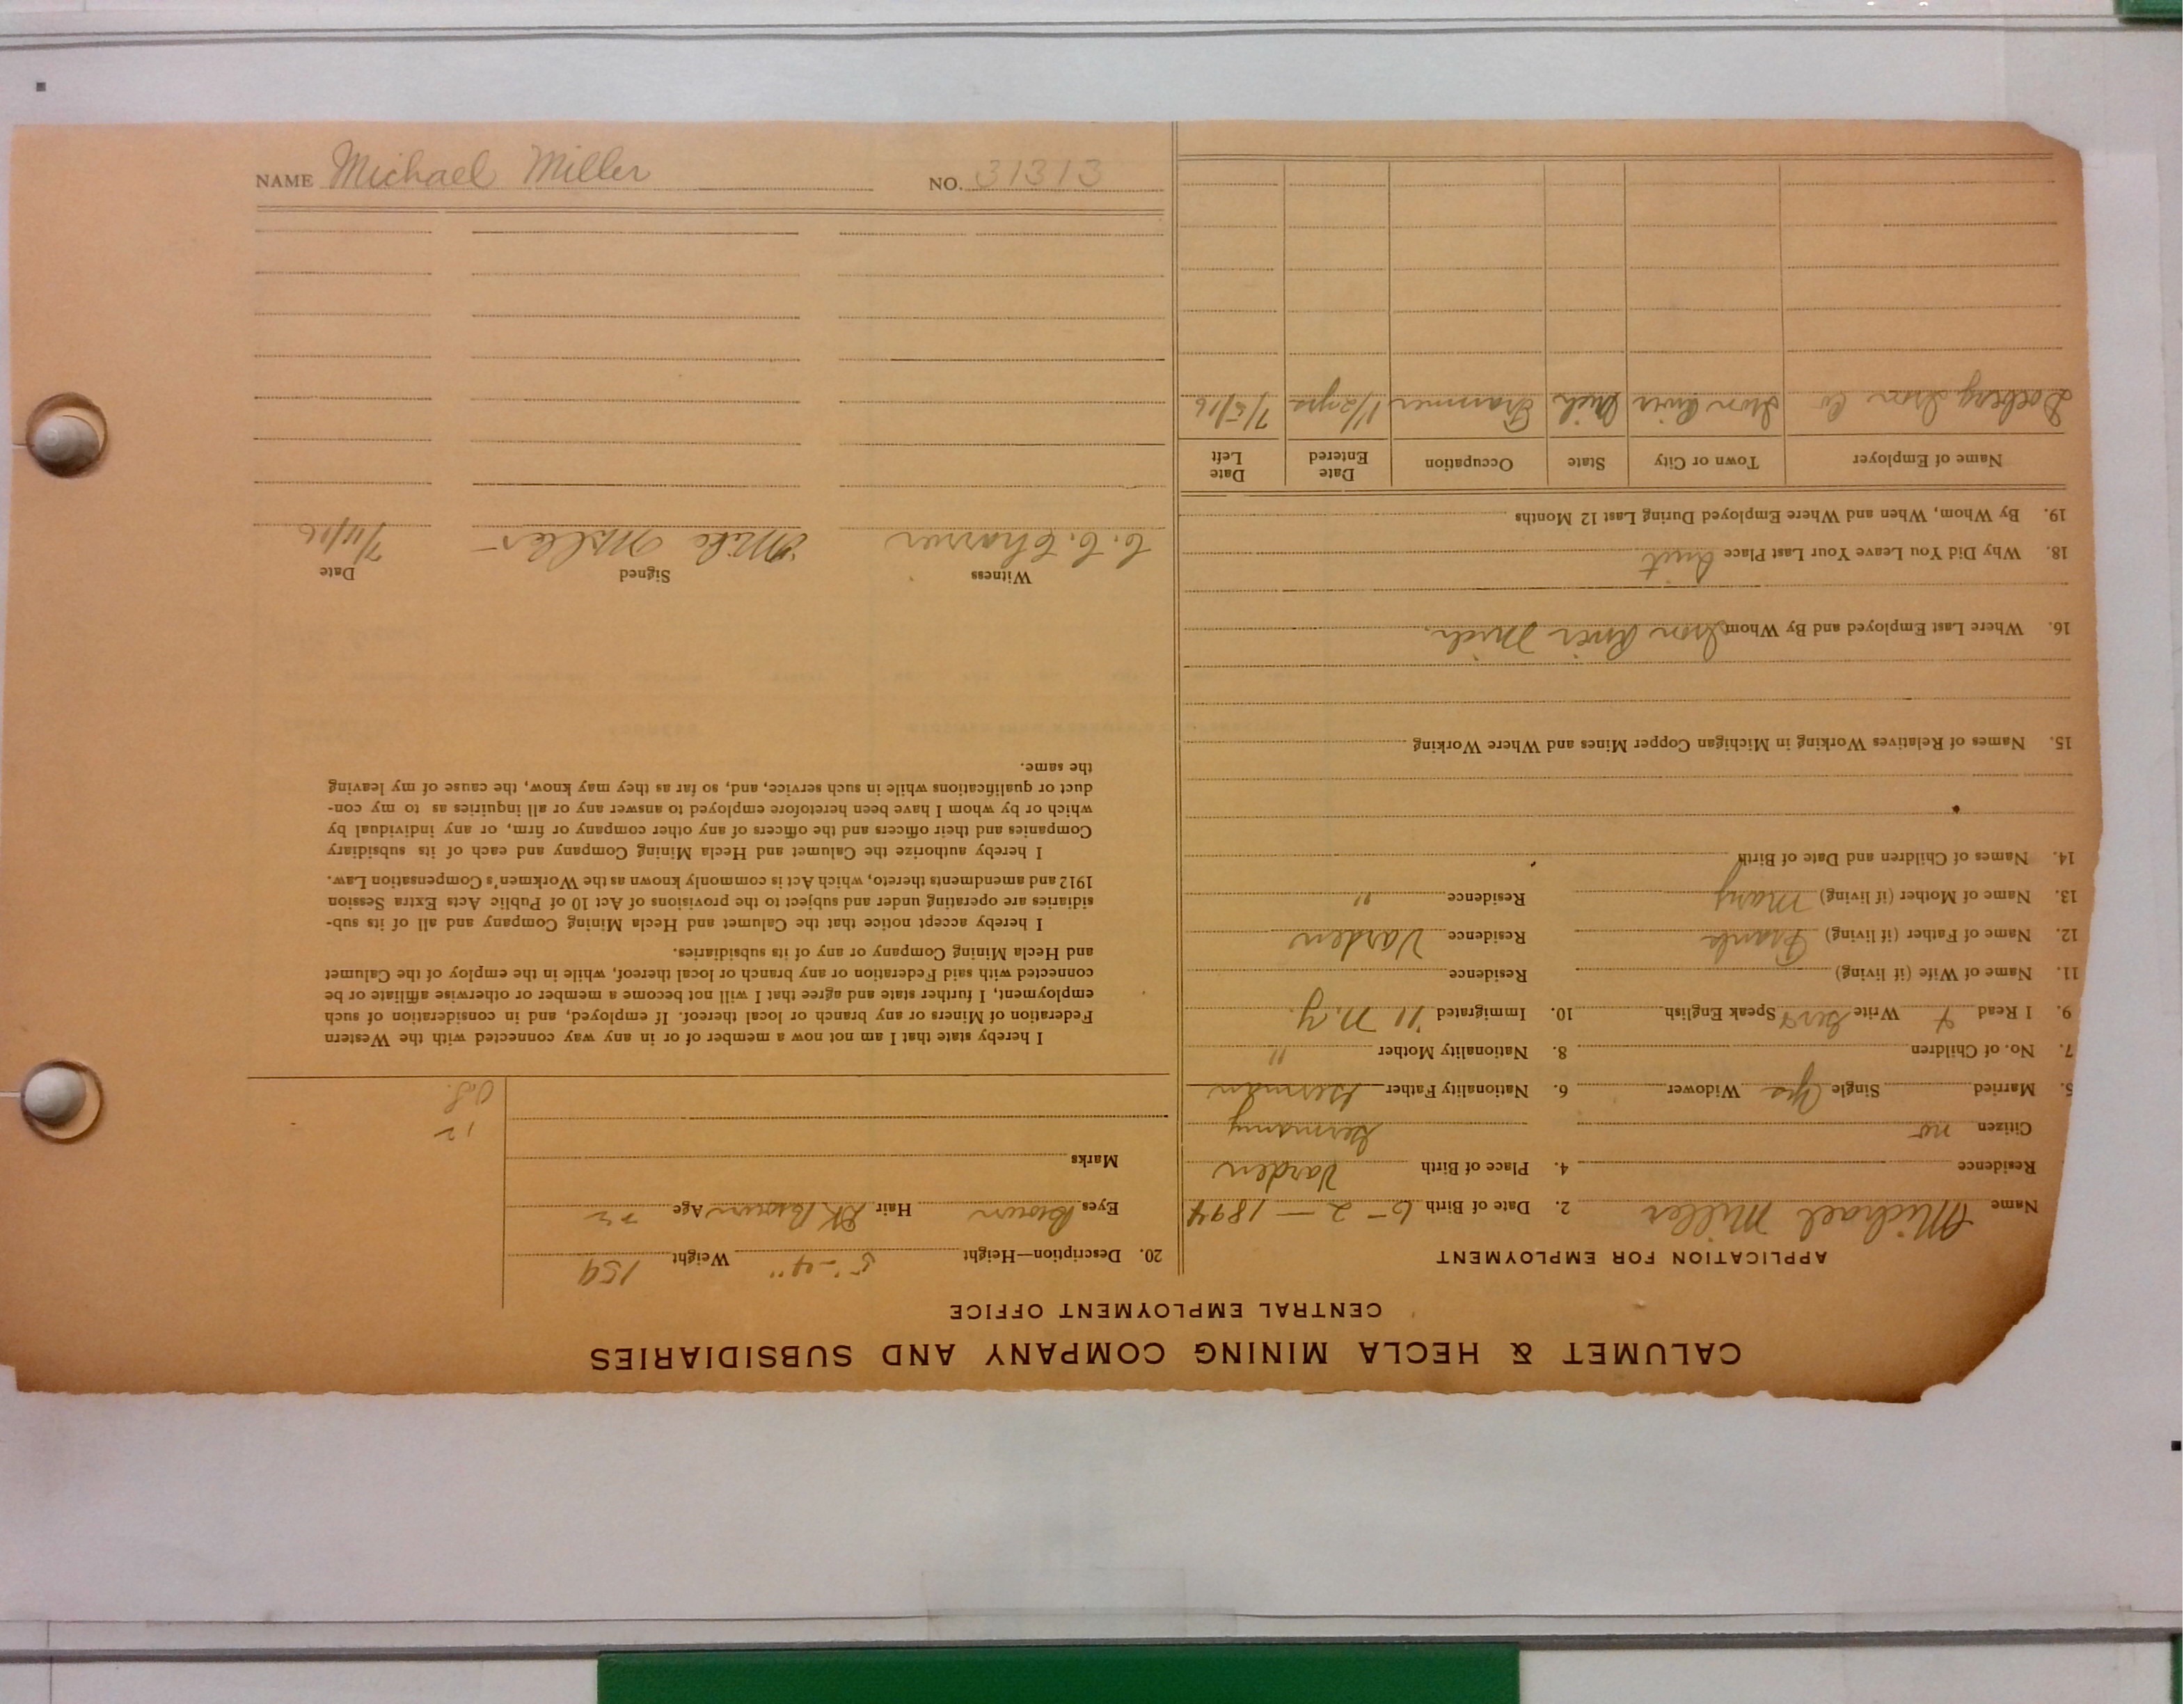 NAME Michael Miller NO. 31313
CALUMET & HECLA MINING COMPANY AND SUBSIDIARIES
CENTRAL EMPLOYMENT OFFICE
APPLICATION FOR EMPLOYMENT
Name Michael Miller
2. Date of Birth 6-2-1894
Residence
4. Place of Birth Varden
Citizen no
Germany
5. Married Single Yes Widower
6. Nationality Father German
7. No. of Children
8. Nationality Mother "
9. I Read Write Speak English
10. Immigrated '11 N.Y.
11. Name of Wife (if living) Residence
12. Name of Father (if living) Frank Residence Varden
13. Name of Mother (if living) Mary Residence "
14. Names of Children and Date of Birth
15. Names of Relatives Working in Michigan Copper Mines and Where Working
16. Where Last Employed and By Whom Iron River Mich.
18. Why Did You Leave Your Last Place Quit
19. By Whom, When and Where Employed During Last 12 Months
Name of Employer Town or City State Occupation Date Entered Date Left
Iron Co Iron River Mich Trammer 1 1/2 yrs 7/5/16
20. Description—Height 5'-4" Weight 159
Eyes Brown Hair DK Brown Age 22
Marks
I hereby state that I am not now a member of or in any way connected with the Western
Federation of Miners or any branch or local thereof. If employed, and in consideration of such
employment, I further state and agree that I will not become a member or otherwise affiliate or be
connected with said Federation or any branch or local thereof, while in the employ of the Calumet
and Hecla Mining Company or any of its subsidiaries.
I hereby accept notice that the Calumet and Hecla Mining Company and all of its sub-
sidiaries are operating under and subject to the provisions of Act 10 of Public Acts Extra Session
1912 and amendments thereto, which Act is commonly known as the Workmen's Compensation Law.
I hereby authorize the Calumet and Hecla Mining Company and each of its subsidiary
Companies and their officers and the officers of any other company or firm, or any individual by
which or by whom I have been heretofore employed to answer any or all inquiries as to my con-
duct or qualifications while in such service, and, so far as they may know, the cause of my leaving
the same.
Witness Signed Date
C. C. Mike Miller 7/11/16